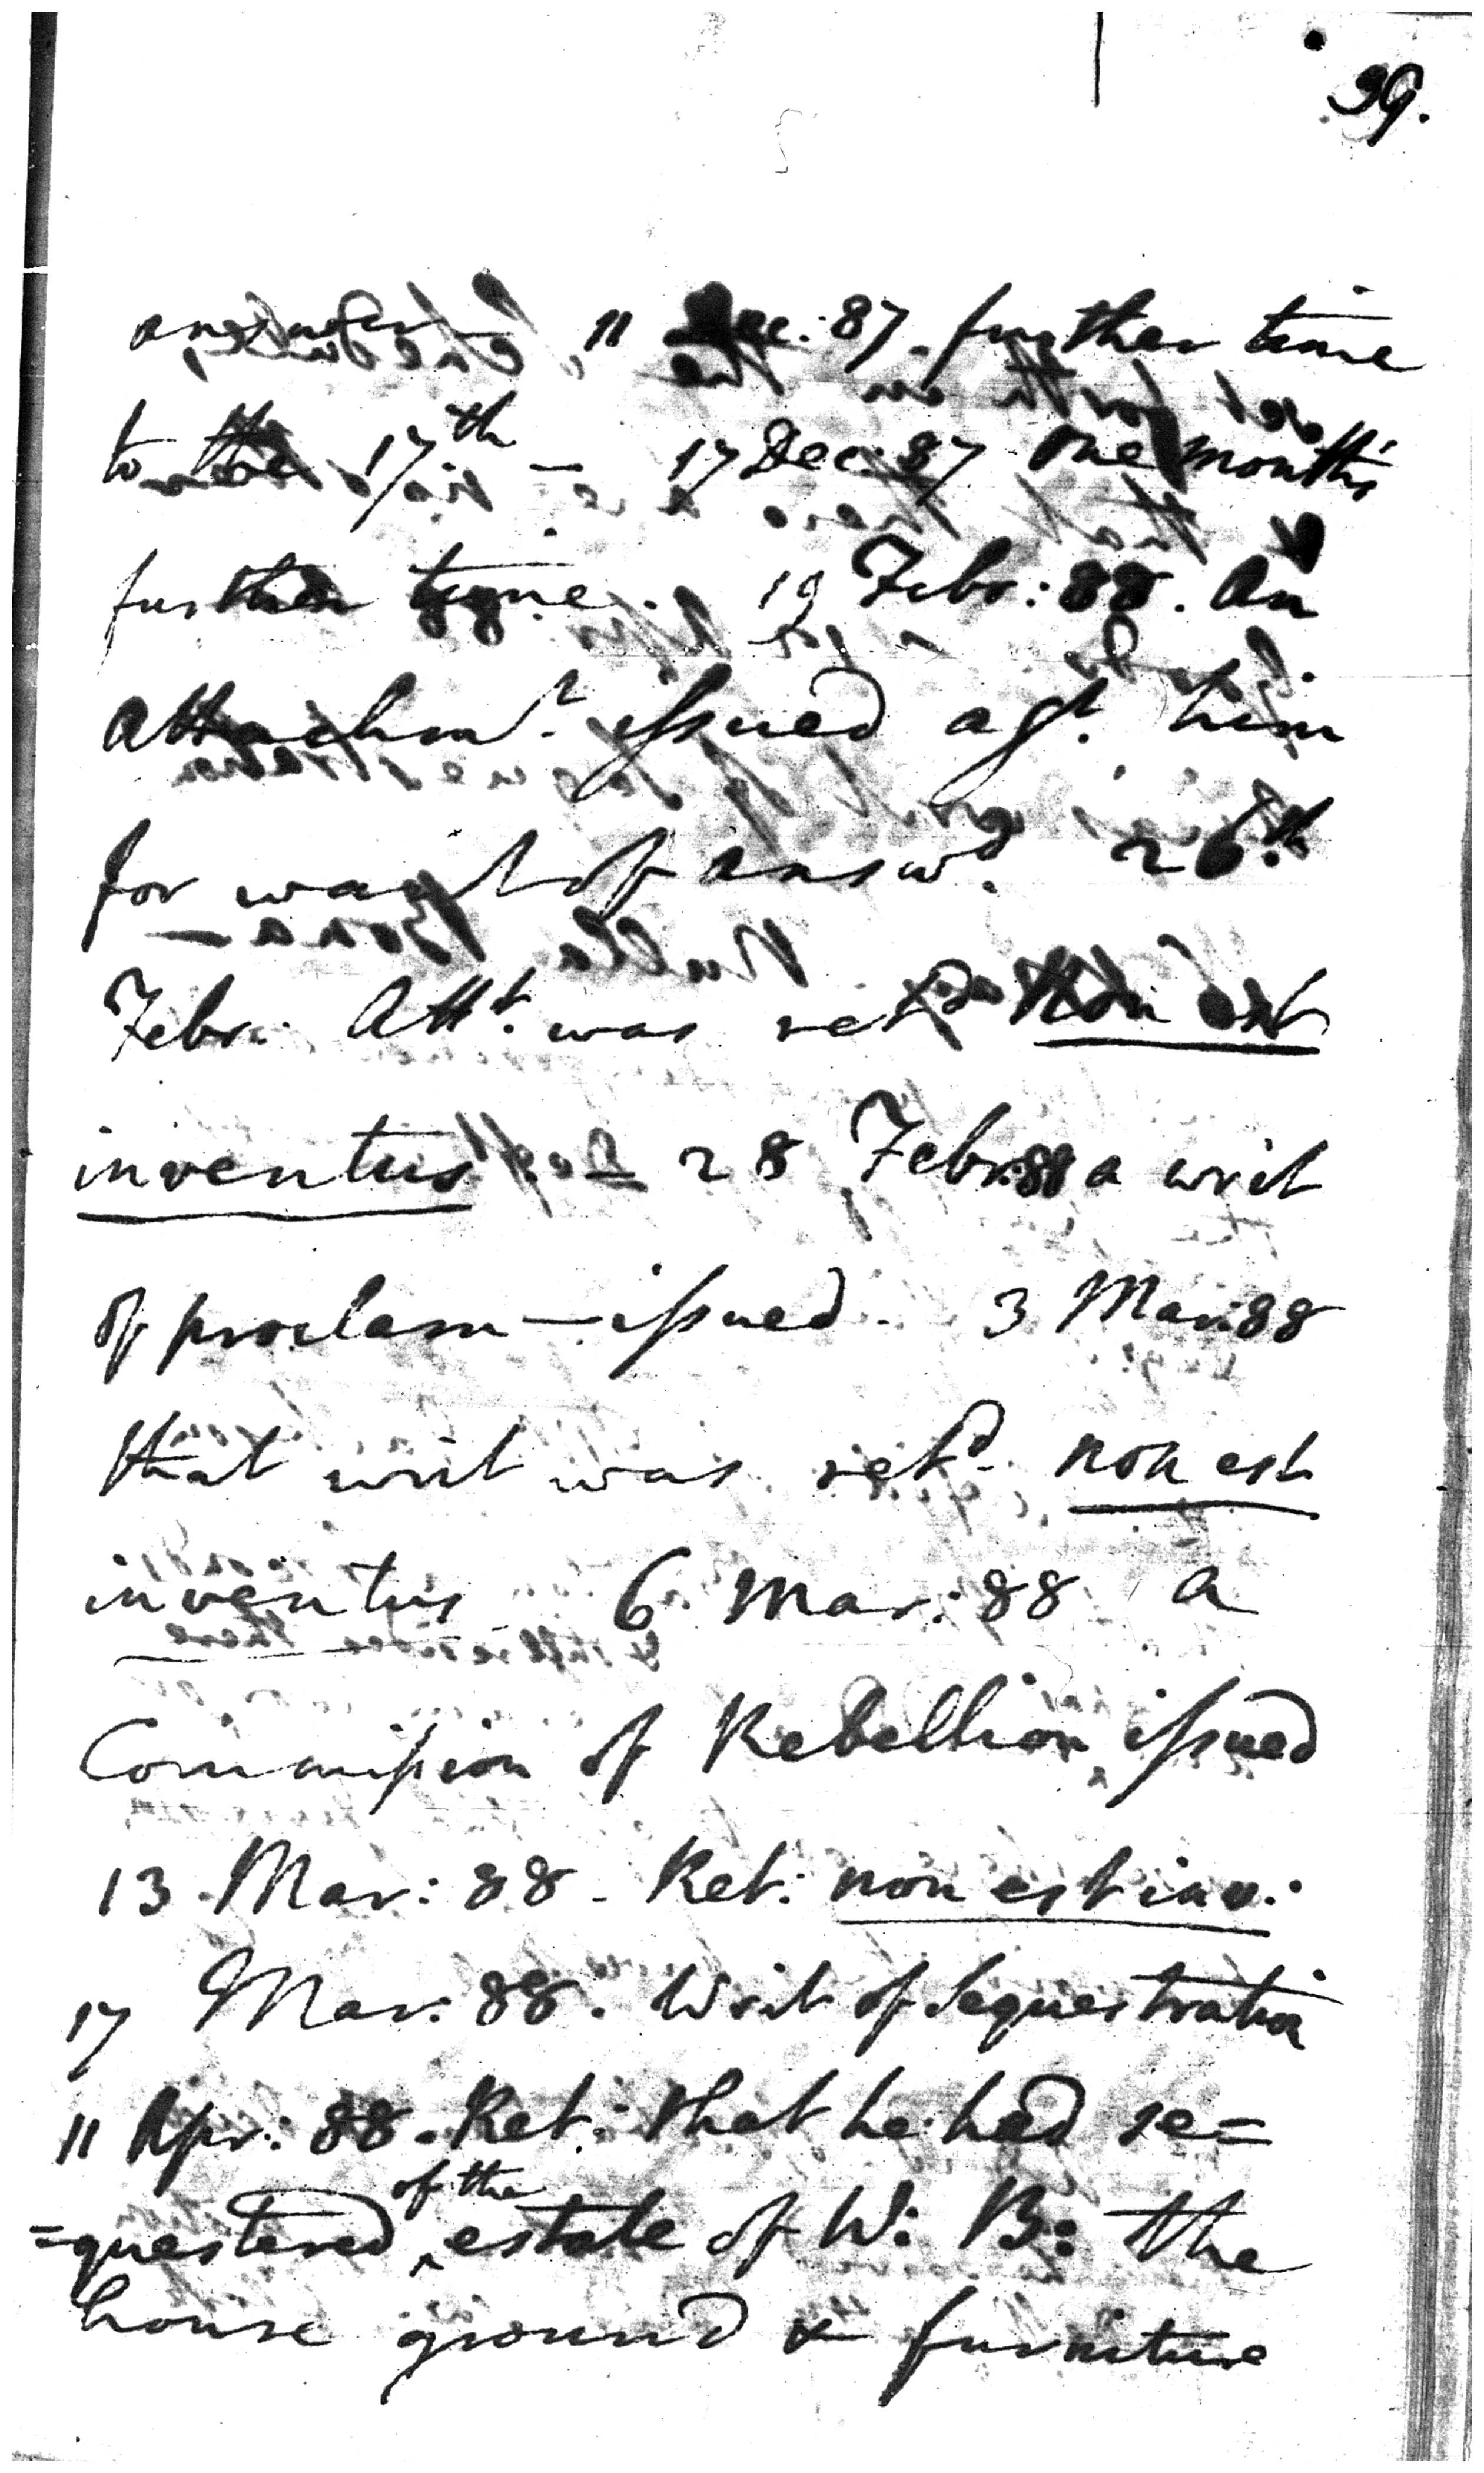 39.
answer — 11 Dec: 87. further time
to the 17th — 17 Dec: 87 one month's
further time. 19 Febr: 88. An
Attachmt. issued agt. him
for want of answr. 26th
Febr: Attt. was retd. Non est
inventus 28 Febr: 88 a writ
of proclam — issued. 3 Mar: 88
that writ was retd. non est
inventus 6 Mar: 88 a
Commission of Rebellion issued
13 Mar: 88 - Ret: non est inv:
17 Mar: 88. Writ of Sequestration
11 Apr: 88. Ret: that he had se=
of the
=questered ‸ estate of W: B: the
house ground & furniture